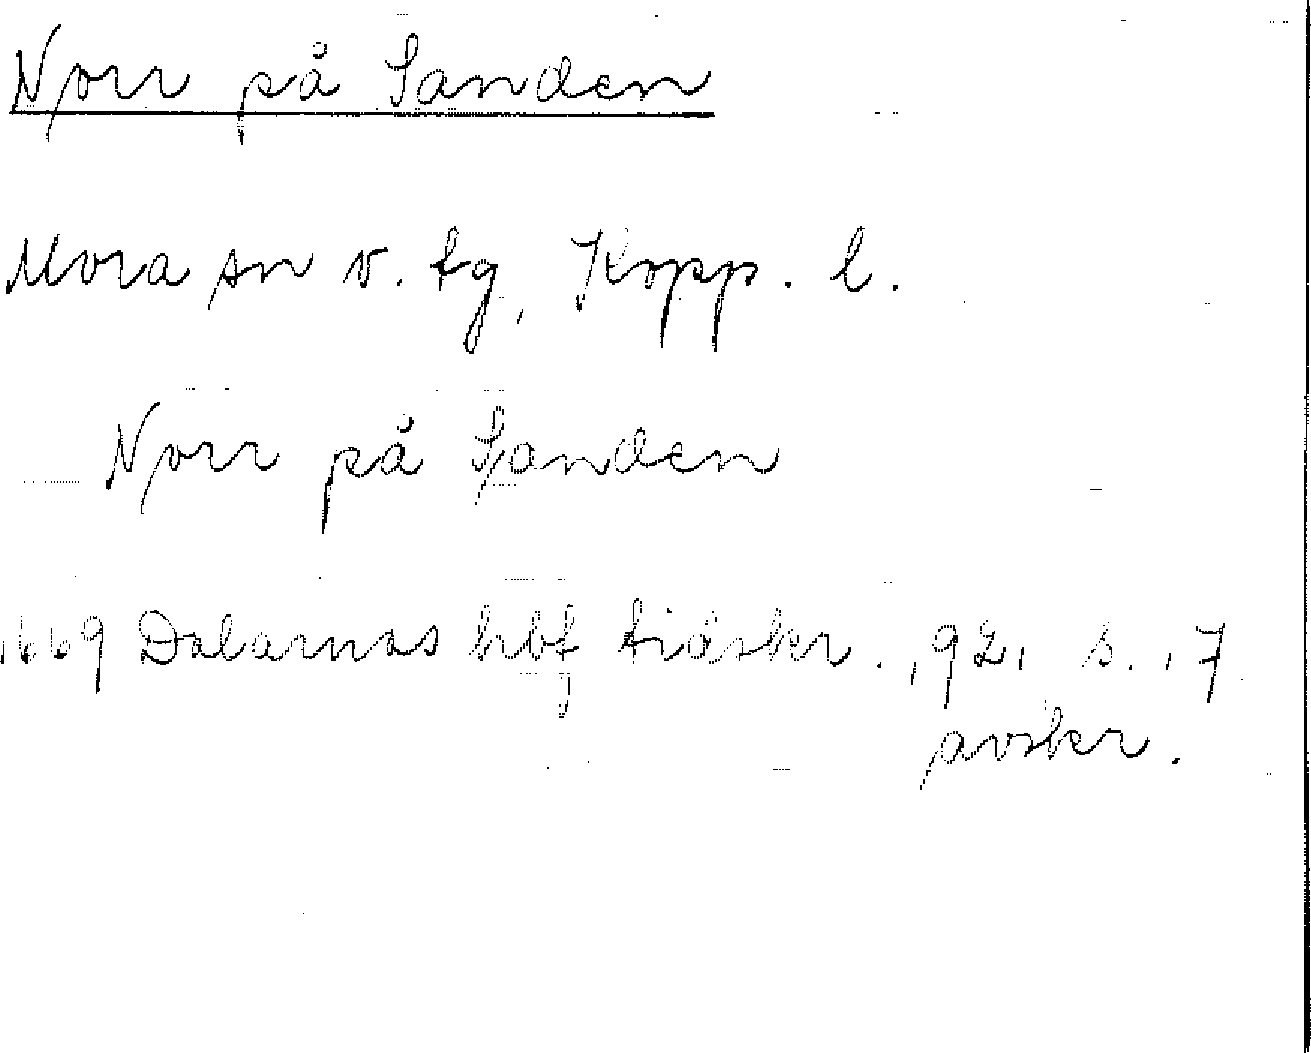 Norr på Sanden
Mora sn v. tg, Kopp. l.
Norr på Sanden
1669 Dalarnas hbf tidskr. 1921 s. 17
avskr.